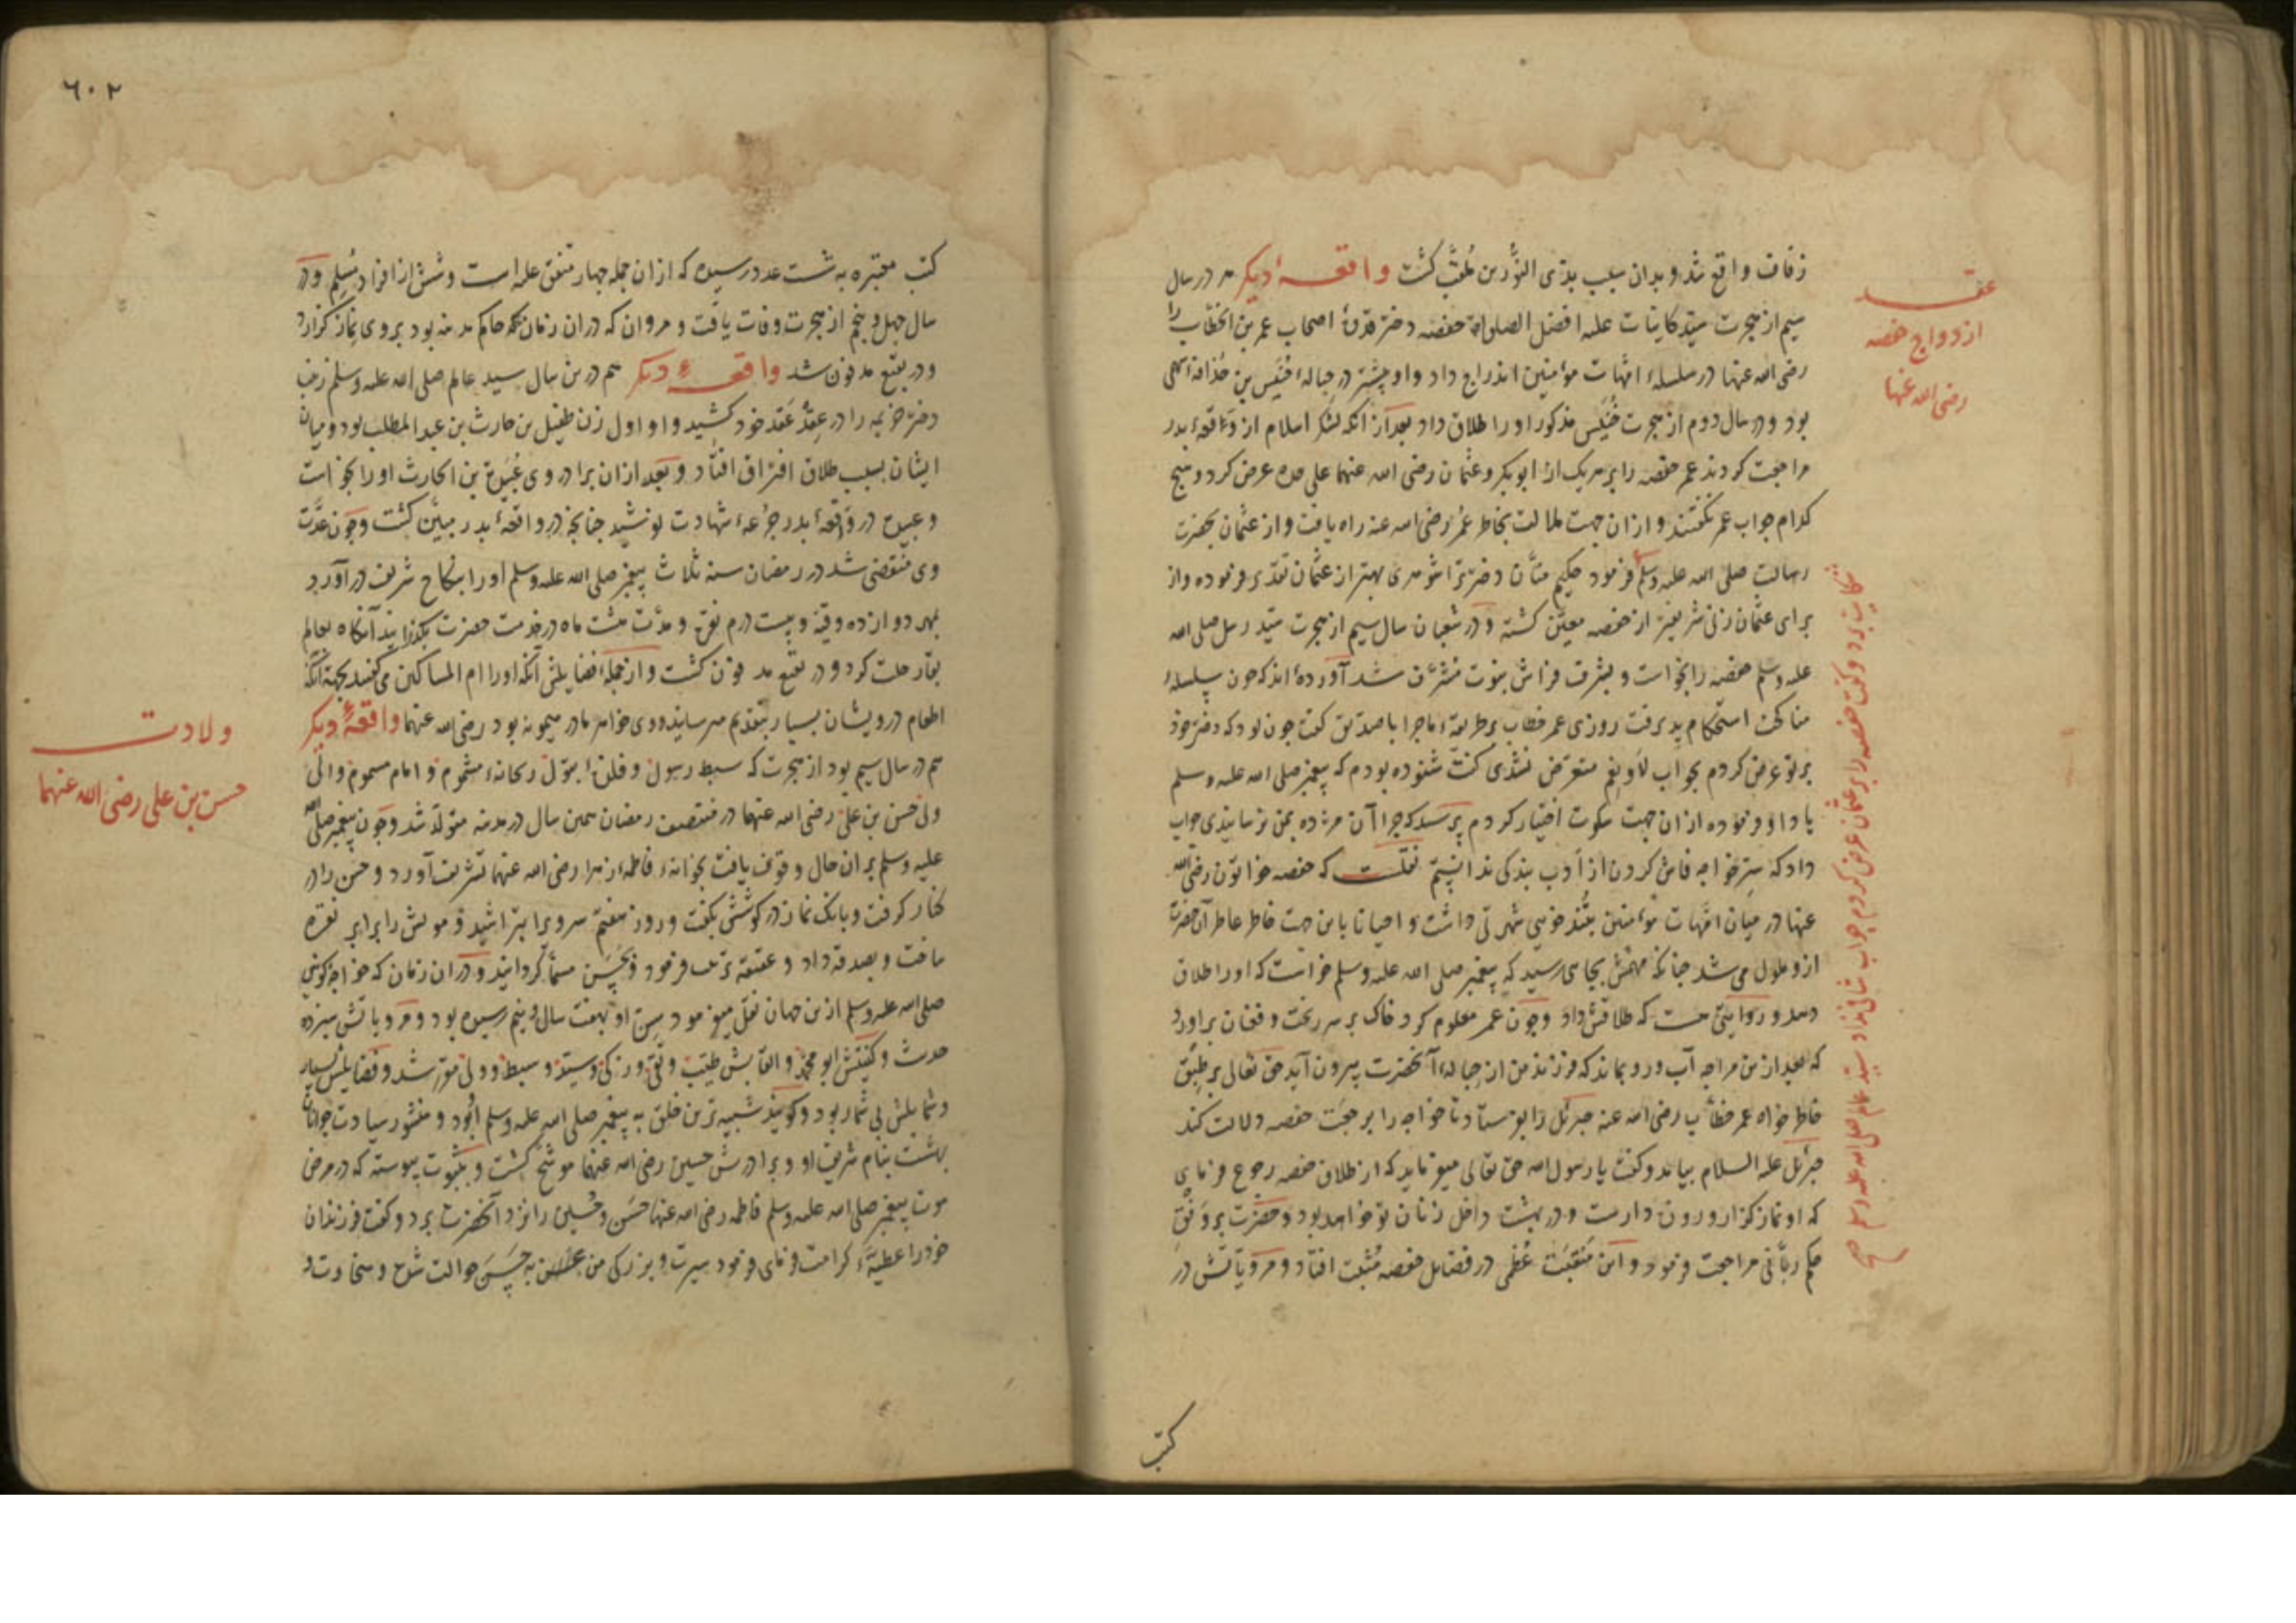 زفاف واقع شد و بدان سبب بذی النورین ملقب گشت واقعهٔ دیکر هم در سال
سیم از هجرت سید کاینات علیه افضل الصلواة حفصه دختر قدوهٔ اصحاب عمر بن الخطاب را
رضی الله عنها در سلسلهٔ امهات مؤمنین اندراج داد و او پیشتر در حبالهٔ خنیس بن حذافه سهمی
بود و در سال دوم از هجرت خنیس مذکور او را طلاق داد بعد از آنکه لشکر اسلام از وقعهٔ بدر
مراجعت کردند عمر حفصه را بر هر یک از ابوبکر و عثمان رضی الله عنهما علی حده عرض کرد و هیچ
کدام جواب عمر نکفتند و از ان جهت ملالت بخاطر عمر رضی الله عنه راه یافت و از عثمان بحضرت
رسالت صلی الله علیه وسلم فرمود حکیم منان دختر ترا شوهری بهتر از عثمان تقدیر فرموده و از
برای عثمان زنی شریفتر از حفصه معین کشته و در شعبان سال سیم از هجرت سید رسل صلی الله
علیه وسلم حفصه را بخواست و بشرف فراش نبوت مشرف شد آورده‌اند که چون سلسلهٔ
مناکحت استحکام پذیرفت روزی عمر خطاب بر طریقهٔ ماجرا با صدیق کفت چون بود که دختر خود
بر تو عرض کردم بجواب لا و نعم متعرض نشدی کفت شنوده بودم که پیغمبر صلی الله علیه وسلم
یاد او فرموده از ان جهت سکوت اختیار کردم پرسید که چرا آن مژده بمن نرسانیدی جواب
داد که سر خواجه فاش کردن از ادب بندکی ندانستم نقلست که حفصه خواتون رضی الله
عنها در میان امهات مؤمنین بتند خویی شهرتی داشت و احیانا باین جهت خاطر عاطر آن حضرت
ازو ملول می شد چنانکه مهمش بجایی رسید که پیغمبر صلی الله علیه وسلم خواست که او را طلاق
دهد و روایتی هست که طلاقش داد و چون عمر معلوم کرد خاک بر سر ریخت و فغان برآورد
که بعد ازین مرا چه آب و رو بماند که فرزند من از حبالهٔ آنحضرت بیرون آید حق تعالی بر طبق
خاطر خواه عمر خطاب رضی الله عنه جبرئیل را بفرستاد تا خواجه را بر رجعت حفصه دلالت کند
جبرئیل علیه السلام بیامد و کفت یا رسول الله حق تعالی میفرماید که از طلاق حفصه رجوع فرمای
که او نماز کزار و روزه دارست و در بهشت داخل زنان تو خواهد بود و حضرت بر وفق
حکم ربانی مراجعت فرمود و این منقبت عظمی در فضایل حفصه مثبت افتاد و مرویاتش در
عقد
ازدواج حفصه
رضی الله عنها
شکایت برد و کفت حفصه را بر عثمان عرض کردم جواب شافی نداد سید عالم صلی الله علیه وسلم صح
کتب
٦٠٢
کتب معتبره به شصت عدد رسیده که از ان جمله چهار متفق علیه است و شش از افراد مسلم و در
سال چهل و پنجم از هجرت وفات یافت و مروان که در ان زمان حاکم مدینه بود بر وی نماز کزارد
و در بقیع مدفون شد واقعهٔ دیکر هم درین سال سید عالم صلی الله علیه وسلم زینب
دختر خزیمه را در عقد عقد خود کشید و او اول زن طفیل بن حارث بن عبد المطلب بود و میان
ایشان بسبب طلاق افتراق افتاد و بعد از ان برادر وی عبیدة بن الحارث او را بخواست
و عبیده در وقعهٔ بدر جرعهٔ شهادت نوشید چنانچه در واقعهٔ بدر مبین کشت و چون عدت
وی منقضی شد در رمضان سنه ثلاث پیغمبر صلی الله علیه وسلم او را بنکاح شریف درآورد
بمهر دوازده وقیه و بیست درم نقره و مدت هشت ماه در خدمت حضرت بکذرانید آنکاه بعالم
بقا رحلت کرد و در بقیع مدفون کشت و از جملهٔ فضایلش آنکه او را ام المساکین می کفتند بجهة آنکه
اطعام درویشان بسیار بتقدیم میرسانید و وی خواهر مادر میمونه بود رضی الله عنهما واقعهٔ دیکر
هم در سال سیم بود از هجرت که سبط رسول و فلذهٔ بتول ریحانهٔ مشموم و امام مسموم والی
ولی حسن بن علی رضی الله عنهما در منتصف رمضان همین سال در مدینه متولد شد و چون پیغمبر صلی الله
علیه وسلم بر ان حال وقوف یافت بخانهٔ فاطمهٔ زهرا رضی الله عنها تشریف آورد و حسن را در
کنار کرفت و بانک نماز در کوشش بکفت و روز هفتم سر ویرا بتراشید و مویش را برابر نقره
ساخت و بصدقه داد و عقیقه ترتیب فرمود و بحسن مسما کردانید و در ان زمان که خواجهٔ کونین
صلی الله علیه وسلم ازین جهان نقل میفرمود سن او بهفت سال و نیم رسیده بود و مرویاتش سیزده
حدیث و کنیتش ابو محمد و القابش طیب و تقی و زکی و سید و سبط و ولی مقرر شد و فضایلش بسیار
و شمایلش بی شمار بود و کویند شبیه ترین خلق به پیغمبر صلی الله علیه وسلم او بود و منشور سیادت جوانان
بهشت بنام شریف او و برادرش حسین رضی الله عنهما موشح کشت و بثبوت پیوسته که در مرض
موت پیغمبر صلی الله علیه وسلم فاطمه رضی الله عنها حسن و حسین را نزد آنحضرت برد و کفت فرزندان
خود را عطیهٔ کرامت فرمای فرمود سیرت و بزرکی من به حسن حوالت شده و سخاوت و
ولادت
حسن بن علی رضی الله عنهما